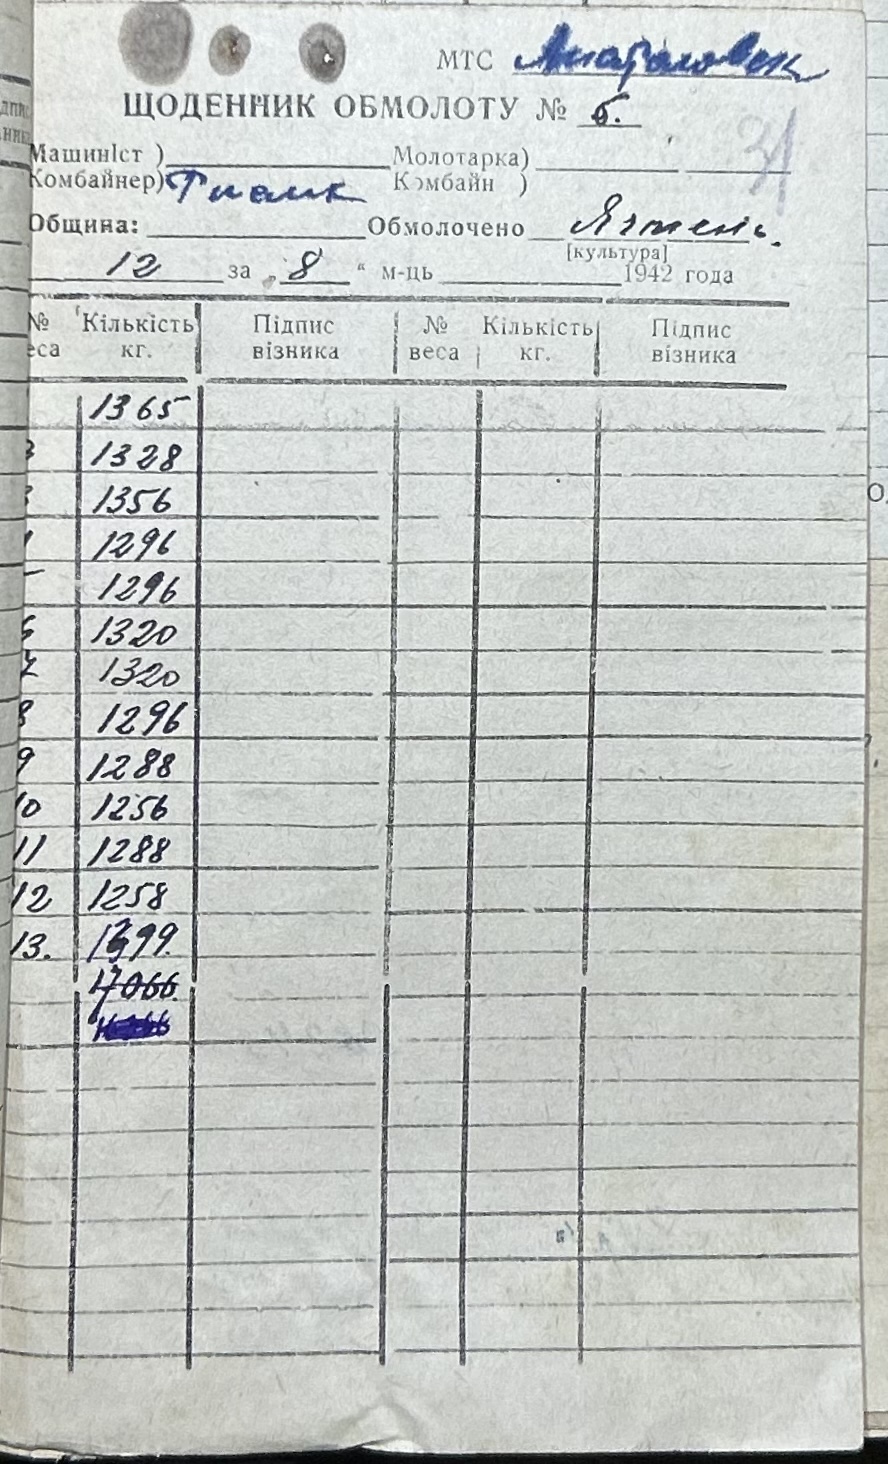 МТС
ЩОДЕННИК ОБМОЛОТУ № 6.
31
Машиніст ) Молотарка)
Комбайнер) Комбайн )
Община: Обмолочено Ячмень.
[культура]
12 за „ 8 “ м-ць 1942 года
№ Кількість Підпис № Кількість Підпис
веса кг. візника веса кг. візника
1365
2 1328
3 1356
1296
5 1296
6 1320
7 1320
8 1296
9 1288
10 1256
11 1288
12 1258
13. 1399.
17066.